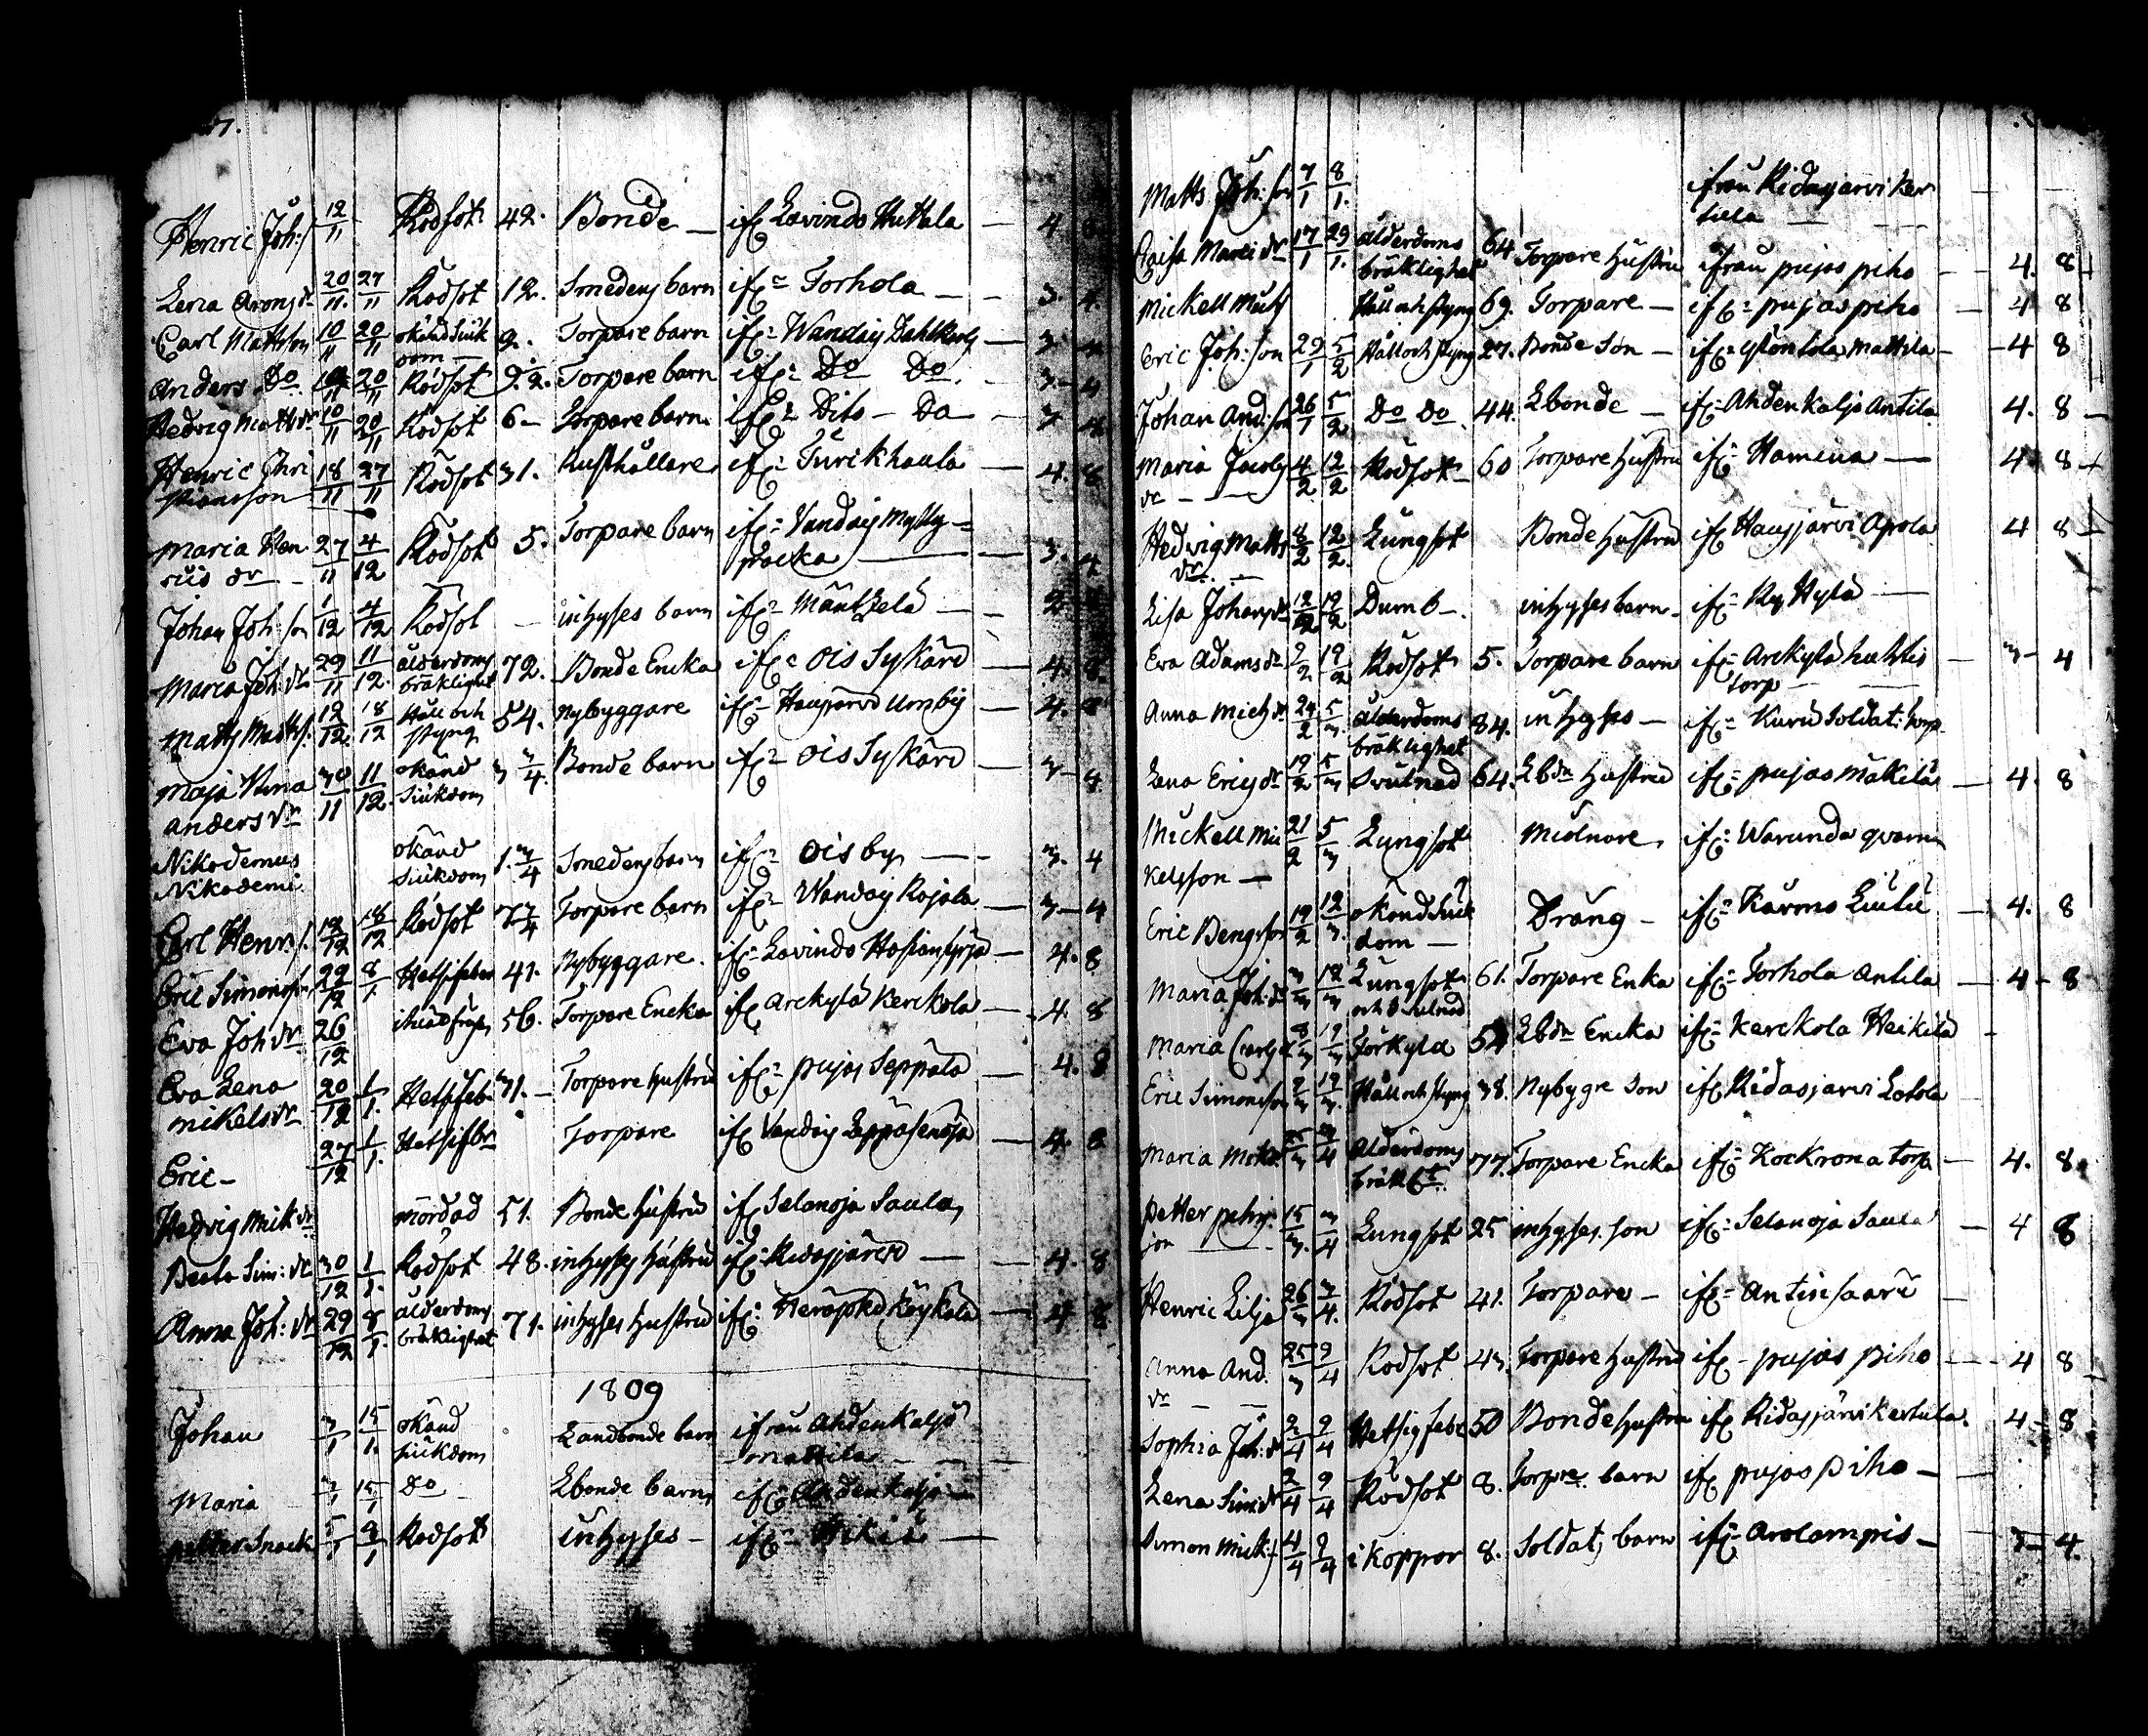 Henric Joh: 12/11 Rödsot 42. Bonde — ifr Lavindo Huttala — 4 8
Lena Arons dr 20/11. 27/11 Rödsot 12. Smedens barn ifr= Torhola — 3. 4.
Carl Mattsson 10/11 20/11 okänd siuk 9. Torpare barn ifr= Wandais Dahlkarls — 3 4
dom —
Anders Do 20/11 Rödsot Torpare barn ifr= Do Do. — 3 — 4
Hedvig Matts dr 10/11 20/11 Rödsot 6 — Torpare barn ifr= Dito — Do — 3 4
Henric Chri 18/11 27/11 Rödsot 31. Rusthållare ifr= Turikhaula — 4. 8
stiansson
Maria Hen 27/11 4/12 Rödsot 5. Torpare barn ifr= Vandais Mylly=
rics dr — packa — 3. 4
Johan Joh: son 1/12 4/12 Rödsot — inhyses barn ifr= Mäntzelä —
Maria Joh: dr 29/11 11/12. ålderdoms 72. Bonde Encka ifr= Ois Syskäre — 4. 8.
bräklighet
Matts Matts: 12/12. 18/12 Håll och 54. Nybyggare ifr= Hausjärvi Umby — 4. 8
styng
Maja Stina 30/11 11/12. okänd 3 3/4. Bonde barn ifr= Ois Syskäre — 3 — 4
Anders dr siukdom
Nikodemus okänd 1. 3/4 Smedens barn ifr= Ois by — 3. 4
Nikodemi siukdom
Carl Henr: 12/12 18/12 Rödsot Torpare barn ifr= Wandais Rajala — 3 — 4
Eric Simonsson 22/12 8/1 Hetsifeber 41. Nybyggare. ifr= Lavindo — 4. 8
Eva Joh dr 26/12 56. Torpare Encka ifr Arckylä Kerckola — 4. 8
Eva Lena 20/12 1/1. Hetsifeb. 31. — Torpare hustru ifr= Pujas Seppälä — 4. 8
Mikels dr
Eric — 27/12 1/1. Hetsifbr Torpare ifr Vandais — 4. 8
Hedvig Mik dr mördad 51. Bonde hustru ifr Selanoja Saula,
Beata Sim: dr 30/12 1/1. Rödsot 48. inhyses hustru ifr= Ridasjärvi — 4. 8
Anna Joh: dr 29/12 8/1. ålderdoms 71. inhyses hustru ifr= Köykölä — 4 8
bräklighet
1809
Johan 3/1 15/1. okänd Landbonde barn ifrån Ahdenkaljo
siukdom Mattila —
Maria 15/1 Do Lbonde barn ifr= Ahdenkaljo —
Petter Snack 5/1 9/1 Rödsot inhyses — ifr= —
Matts Joh: son 7/1 8/1. ifrån Ridasjärvi Ker
tula —
Caisa 17/1 29/1. ålderdoms 64. Torpare hustru ifrån Pujas piho — 4. 8
bräklighet
Mickell Håll och styng 69. Torpare — ifr= Pujas piho — 4 8
Eric Joh: son 29/1 5/2 Håll och styng 27. Bonde Son — ifr= Mattila — 4 8
Johan And: son 26/1 5/2 Do Do 44. Lbonde — ifr= Ahdenkaljo Antila 4. 8
Maria Jacobs 4/2 12/2 Rödsot — 60 Torpare hustru ifr= Hamina — 4. 8
dr —
Hedvig Matts 8/2 12/2. Lungsot Bonde hustru ifr Hausjärvi Apola 4 8
dr —
Lisa Johans dr 12/2 19/2 Dumb —. inhyses barn — ifr= Ry Hylä —
Eva Adams dr 19/2 Rödsot 5. Torpare barn ifr= Arckylä — 3 — 4
torp —
Anna Mich dr 24/2 5/3 ålderdoms 84. inhyses — ifr= Kuru Soldats torp
bräklighet
Lena Erics dr 19/2 5/3 svulnad 64. Lbde hustru ifr= Pujas Mäkilä — 4. 8
Mickell Mic 21/2 5/3 Lungsot Miölnare, ifr= Warunda qvarn
kelsson —
Eric Bengtsson 19/2 12/3. okänd siuk Dräng — ifr= Karmo — 4. 8
dom —
Maria Joh: dr 3/3 12/3 Lungsot 61. Torpare Enka ifr= Torhola Antila — 4 — 8
och svulnad
Maria Carls dr 8/3 19/3 Förkyld Lbde Encka ifr= Kerckola Heikilä —
Eric Simonsson 19/3. Håll och styng 38. Nybygre Son ifr Ridasjärvi
Maria 3/4 ålderdoms 77. Torpare Encka ifr= torp — 4. 8
bräkl.
Petter 15/3. 3/4 Lungsot 25 inhyses son ifr= Selanoja Saula — 4 8
son —
Henric Lilja 26/3 3/4. Rödsot 41. Torpare — ifr= Antinsaari —
Anna And. 25/3 9/4 Rödsot 43. Torpare hustru ifr — Pujas piho — 4 8
dr —
Sophia Joh: dr 2/4 9/4 Hetsig feber 50 Bonde hustru ifr Ridasjärvi Kertula. 4 — 8
Lena Sim: dr 2/4 9/4 Rödsot 8. Torpre barn ifr Pujas piho —
Simon Mick: 4/4 9/4 i koppor 8. Soldats barn ifr= Arolampis — 3 — 4.